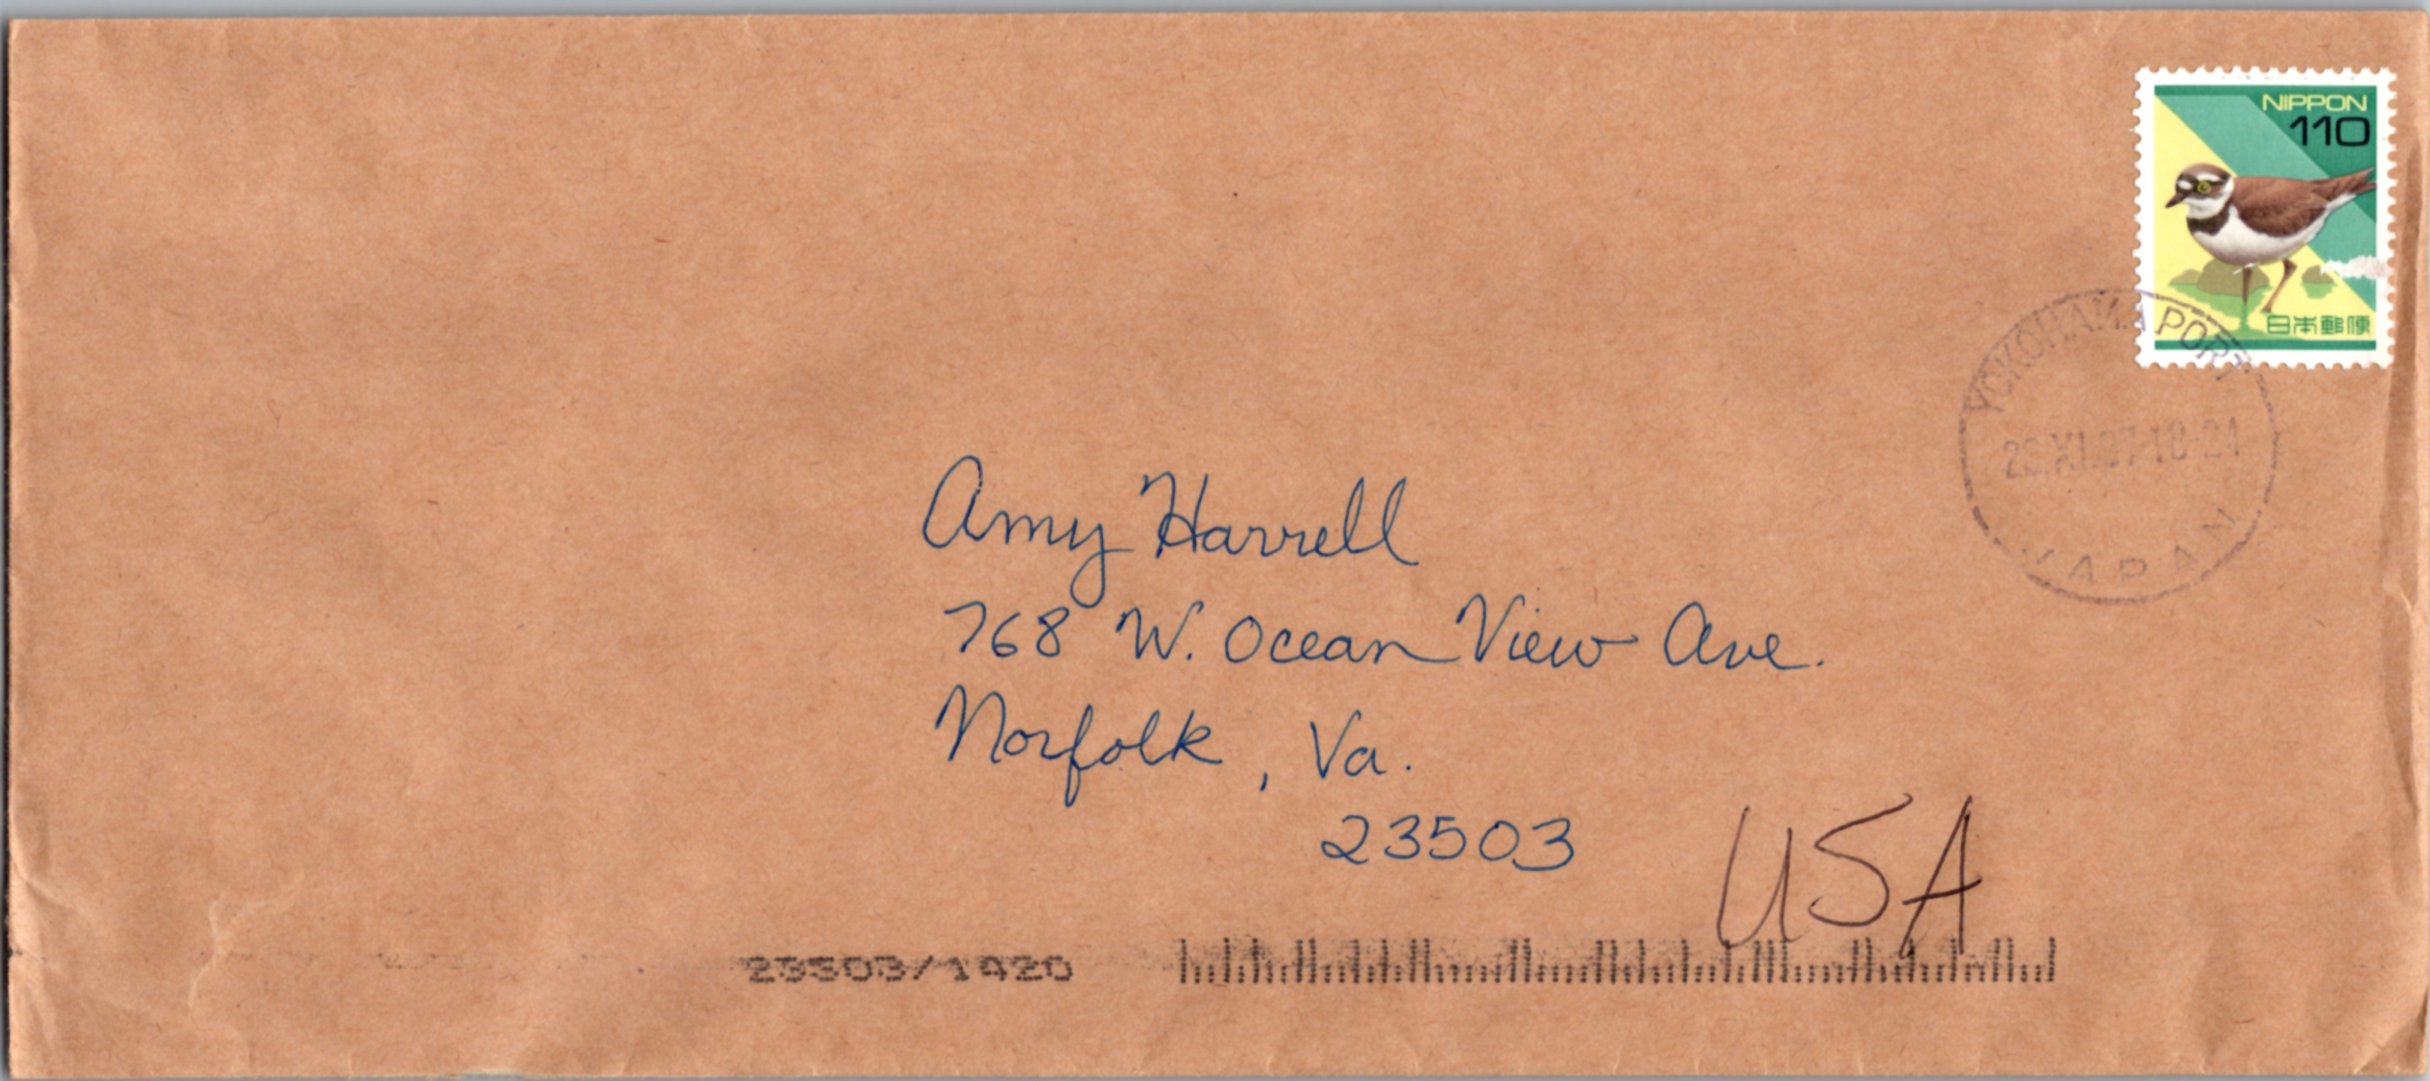 NIPPON
110
日本郵便
YOKOHAMA PORT
JAPAN
Amy Harrell
768 W. Ocean View Ave.
Norfolk, Va.
23503
USA
23503/1420